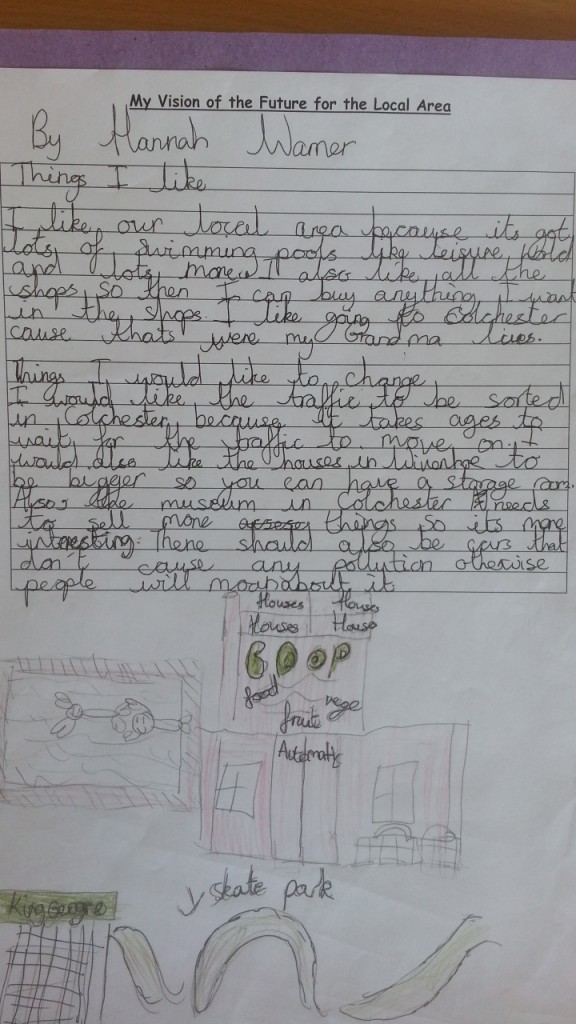 My Vision of the Future for the Local Area
By Hannah Warner
Things I like
I like our local area because its got
lots of swimming pools like leisure World
and lots more. I also like all the
shops so then I can buy anything I want
in the shops. I like going to Colchester
cause thats were my Grandma lives.
Things I would like to change
I would like the traffic to be sorted
in Colchester because it takes ages to
wait for the traffic to move on. I
would also like the houses in Wivenhoe to
be bigger so you can have a storage room.
Also the museum in Colchester needs
to sell more things so its more
interesting. There should also be cars that
don't cause any pollution otherwise
people will moan about it
Houses House
Houses House
COOP
food vege
fruite
Automatic
skate park
King George